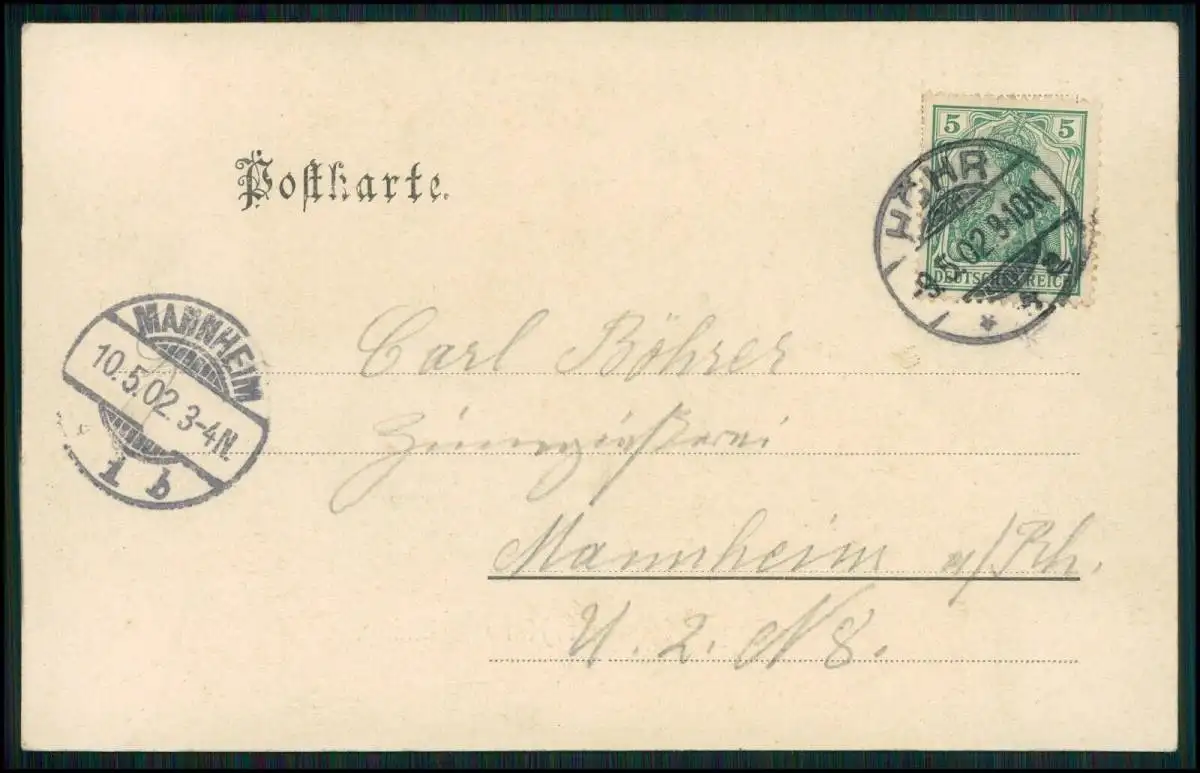 Postkarte.
5 5
DEUTSCHES REICH
HÖHR
9.5.02.9-10N.
MANNHEIM
10.5.02.3-4N.
1 b
Carl Böhrer
Zinngießerei
Mannheim a/Rh.
U. 2. N 8.